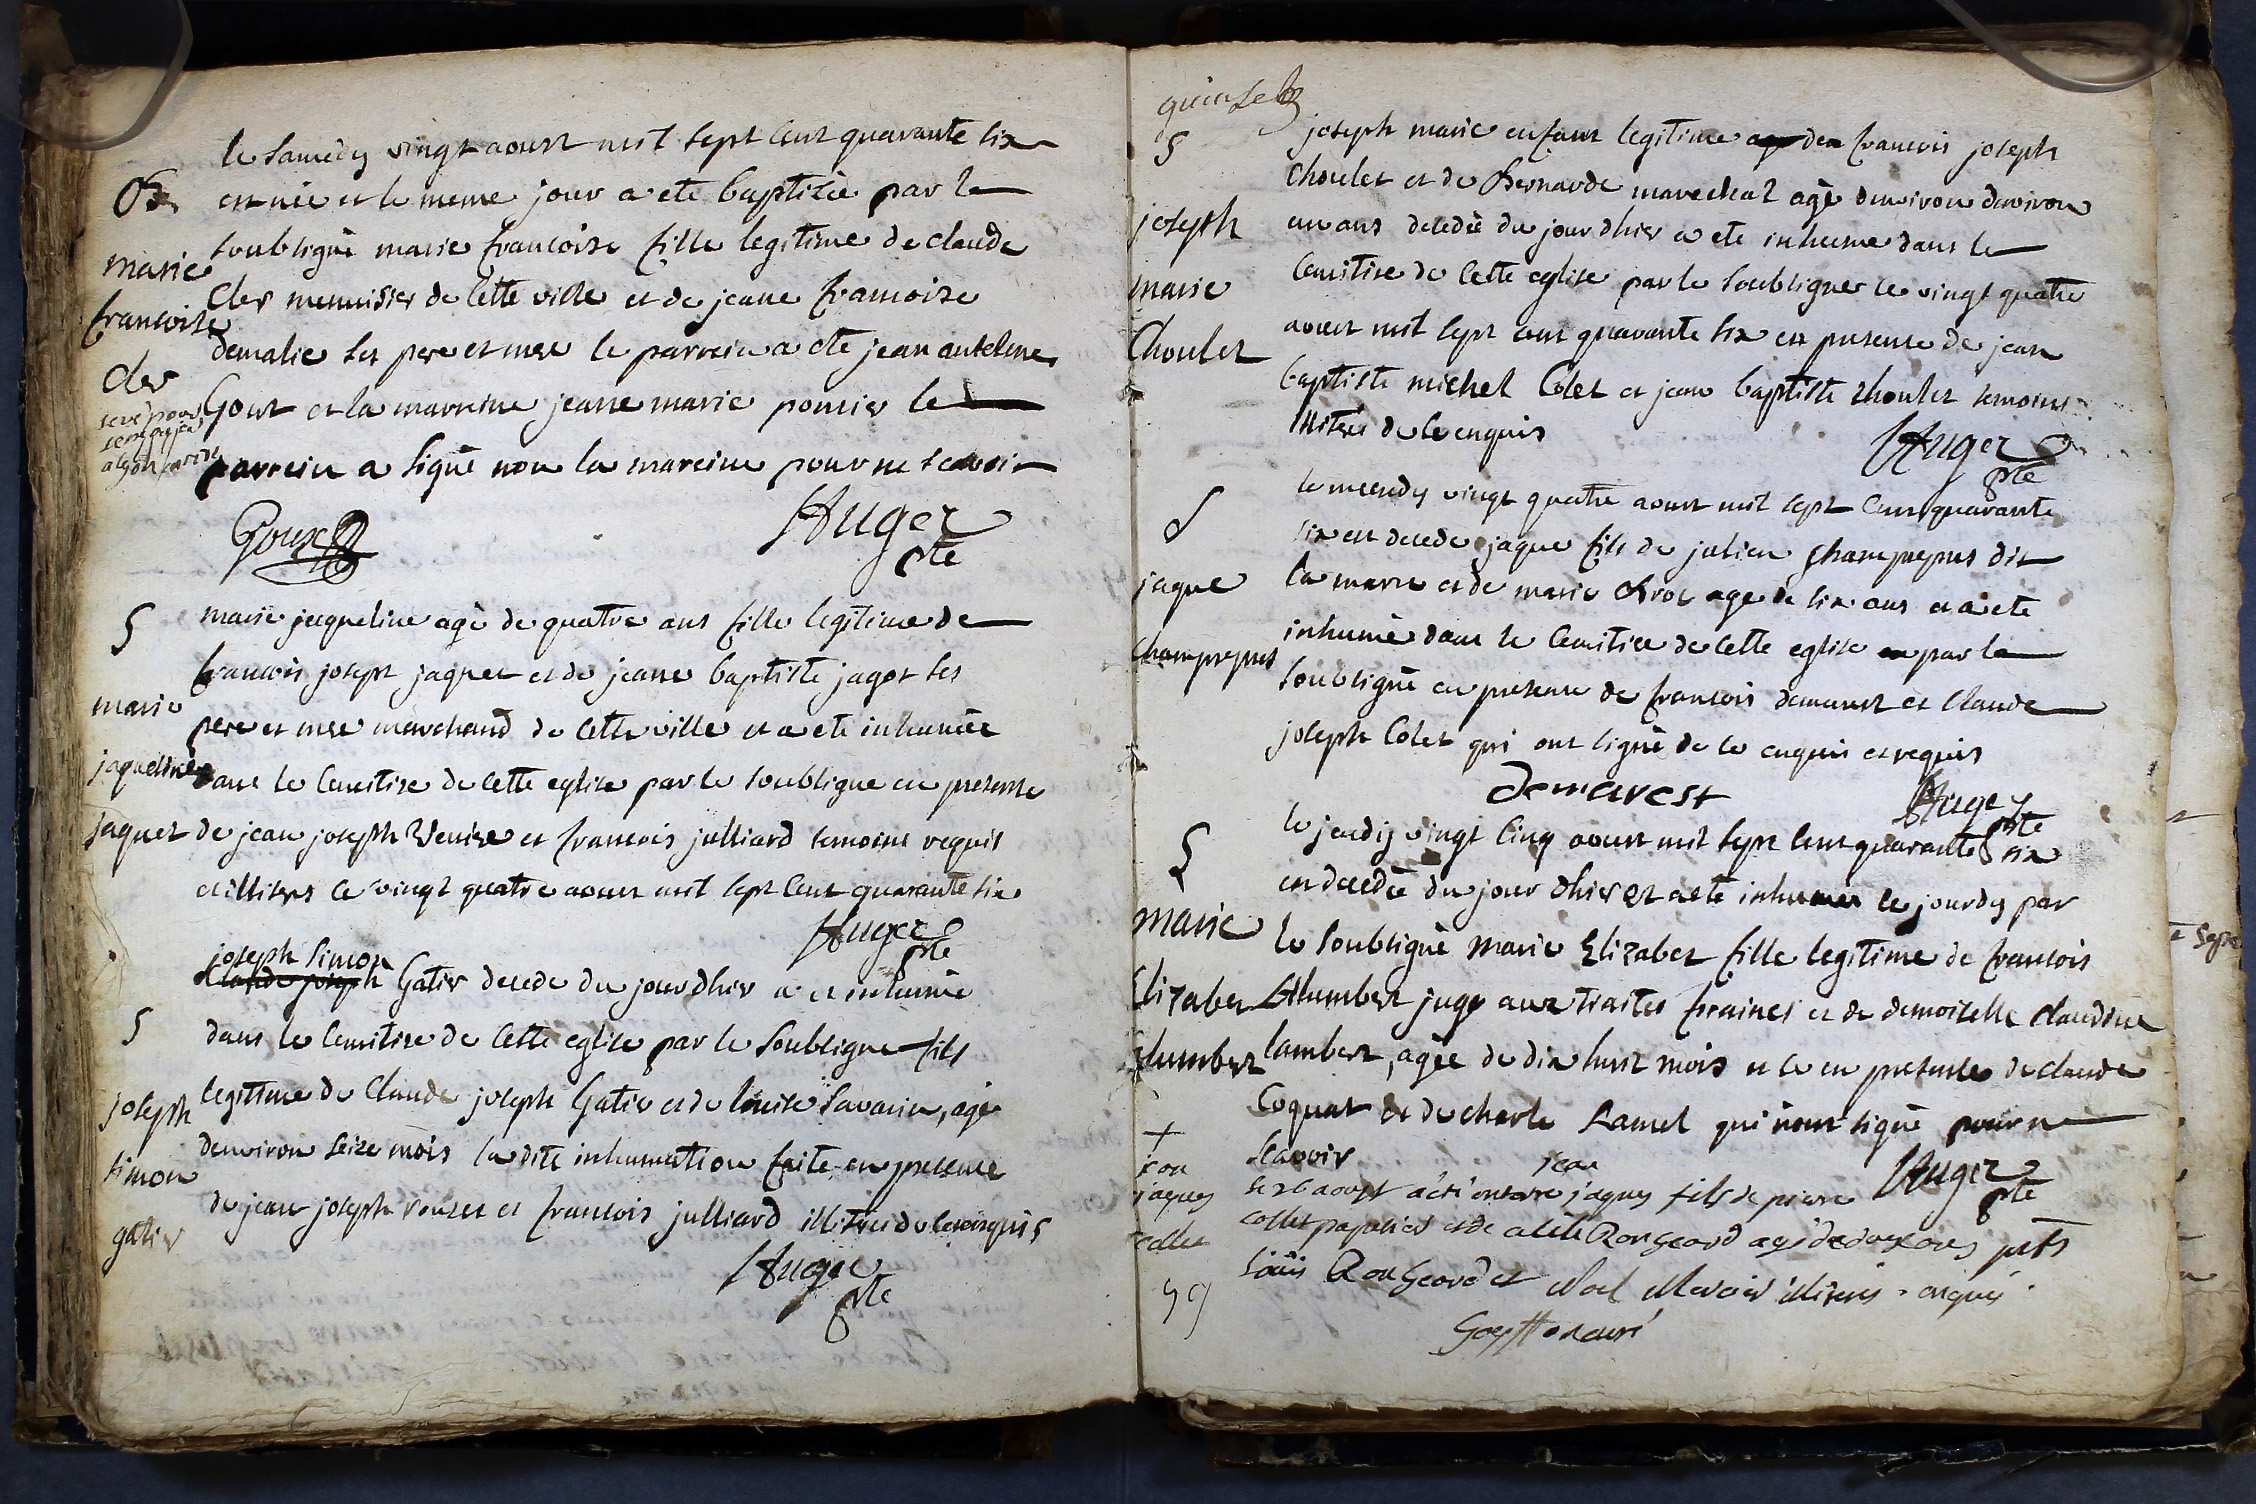 le samedy vingt aoust mil sept cent quarante six
est née et le meme jour a eté baptisée par le
soubsigné marie francoise fille legitime de claude
Cler menuisier de cette ville et de jeane francoise
demalie ses pere et mere le parrein a ete jean antelme
Gout et la marreine jeane marie pousier le
parrein a signé non la mareine pour ne scavoir
marie
francoise
cler
Goux
Auger
ptre
S
marie
jaqueline
jaquet
marie jacqueline agé de quatre ans fille legitime de
francois joseph jaquet et de jeane baptiste jagot ses
pere et mere marchand de cette ville et a eté inhumée
dans le cemitire de cette eglise par le soubsigné en presence
de jean joseph Venise et francois julliard temoins requis
et illitres ce vingt quatre aoust mil sept cent quarante six
Auger
ptre
S
joseph
simon
gatier
joseph simon
claude joseph Gatier decede du jour dhier a et inhumé
dans le cemitire de cette eglise par le soubsigne fils
legitime de Claude joseph Gatier et de louise Savarin, agé
denviron seize mois la dite inhumation faite en presence
de jean joseph rouset et francois julliard illitres de ce enquis
Auger
ptre
quinze
S
joseph
marie
Choulet
joseph marie enfant legitime de francois joseph
Choulet et de Bernarde marechal agé denviron denviron
un ans decedé du jour dhier a ete inhume dans le
Cemitire de cette eglise par le soubsigner le vingt quatre
aoust mil sept cent quarante six en presence de jean
baptiste michel Colet et jean baptiste choulet temoins
illitrés de ce enquis
Auger
ptre
S
jaque
Champrepus
le mecredy vingt quatre aoust mil sept cent quarante
six est decede jaque fils de julien Champrepus dit
la marre et de marie Brot age de six ans et a ete
inhumé dans le Cemitire de cette eglise par le
soubsigné en presence de francois demarest et Claude
joseph Colet qui ont signé de ce enquis et requis
demarest
Auger
ptre
S
Marie
Elizabet
Humbert
le jeudy vingt cinq aoust mil sept cent quarante six
est decedée du jour dhier et a ete inhumée le jourdy par
le soubsigné Marie Elizabet fille legitime de francois
Humbert juge aux traites foraines et de demoiselle Claudine
lambert, agée de dix huit mois et ce en presence de claude
Coquat et de charle Lamel qui n'ont signé pour ne
scavoir
Auger
ptre
+
jean
jaques
collet
jean
le 26 aoust a été enterré jaques fils de pierre
collet papetier et de Rongeard agé de dux ans pnts
Louis Rongeard et Noel Mercier illiterés enquis